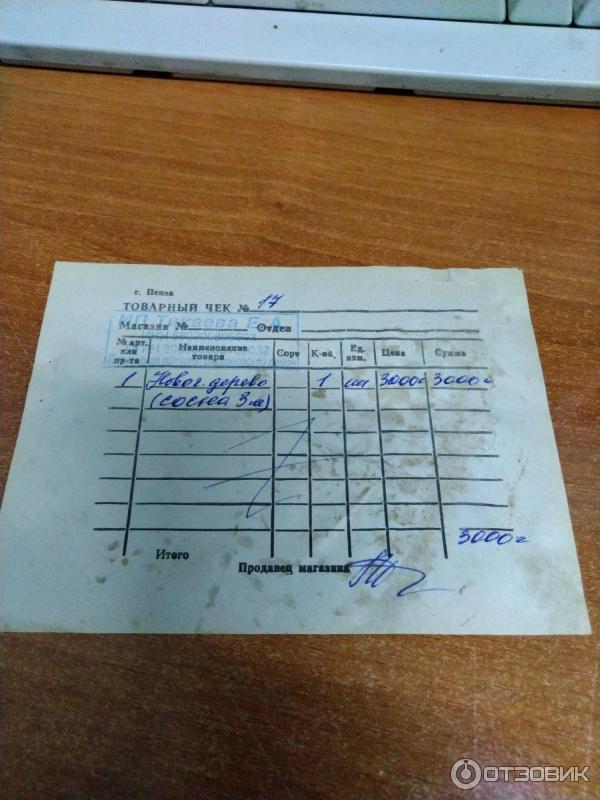 г. Пенза
ТОВАРНЫЙ ЧЕК № 17
ИП Е.А.
Магазин № Отдел
№ арт. или пр-та Наименование товара Сорт К-во Ед. изм. Цена Сумма
1 Новог. дерево 1 шт 3000= 3000=
(сосна 3м)
3000=
Итого
Продавец магазина
ОТЗОВИК